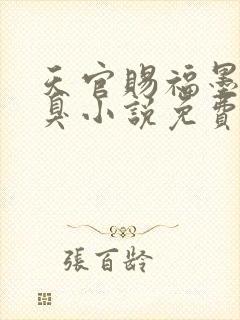 天官賜福墨
臭小説免費
張百齡